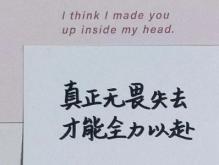 I think I made you
up inside my head.
真正无畏失去
才能全力以赴